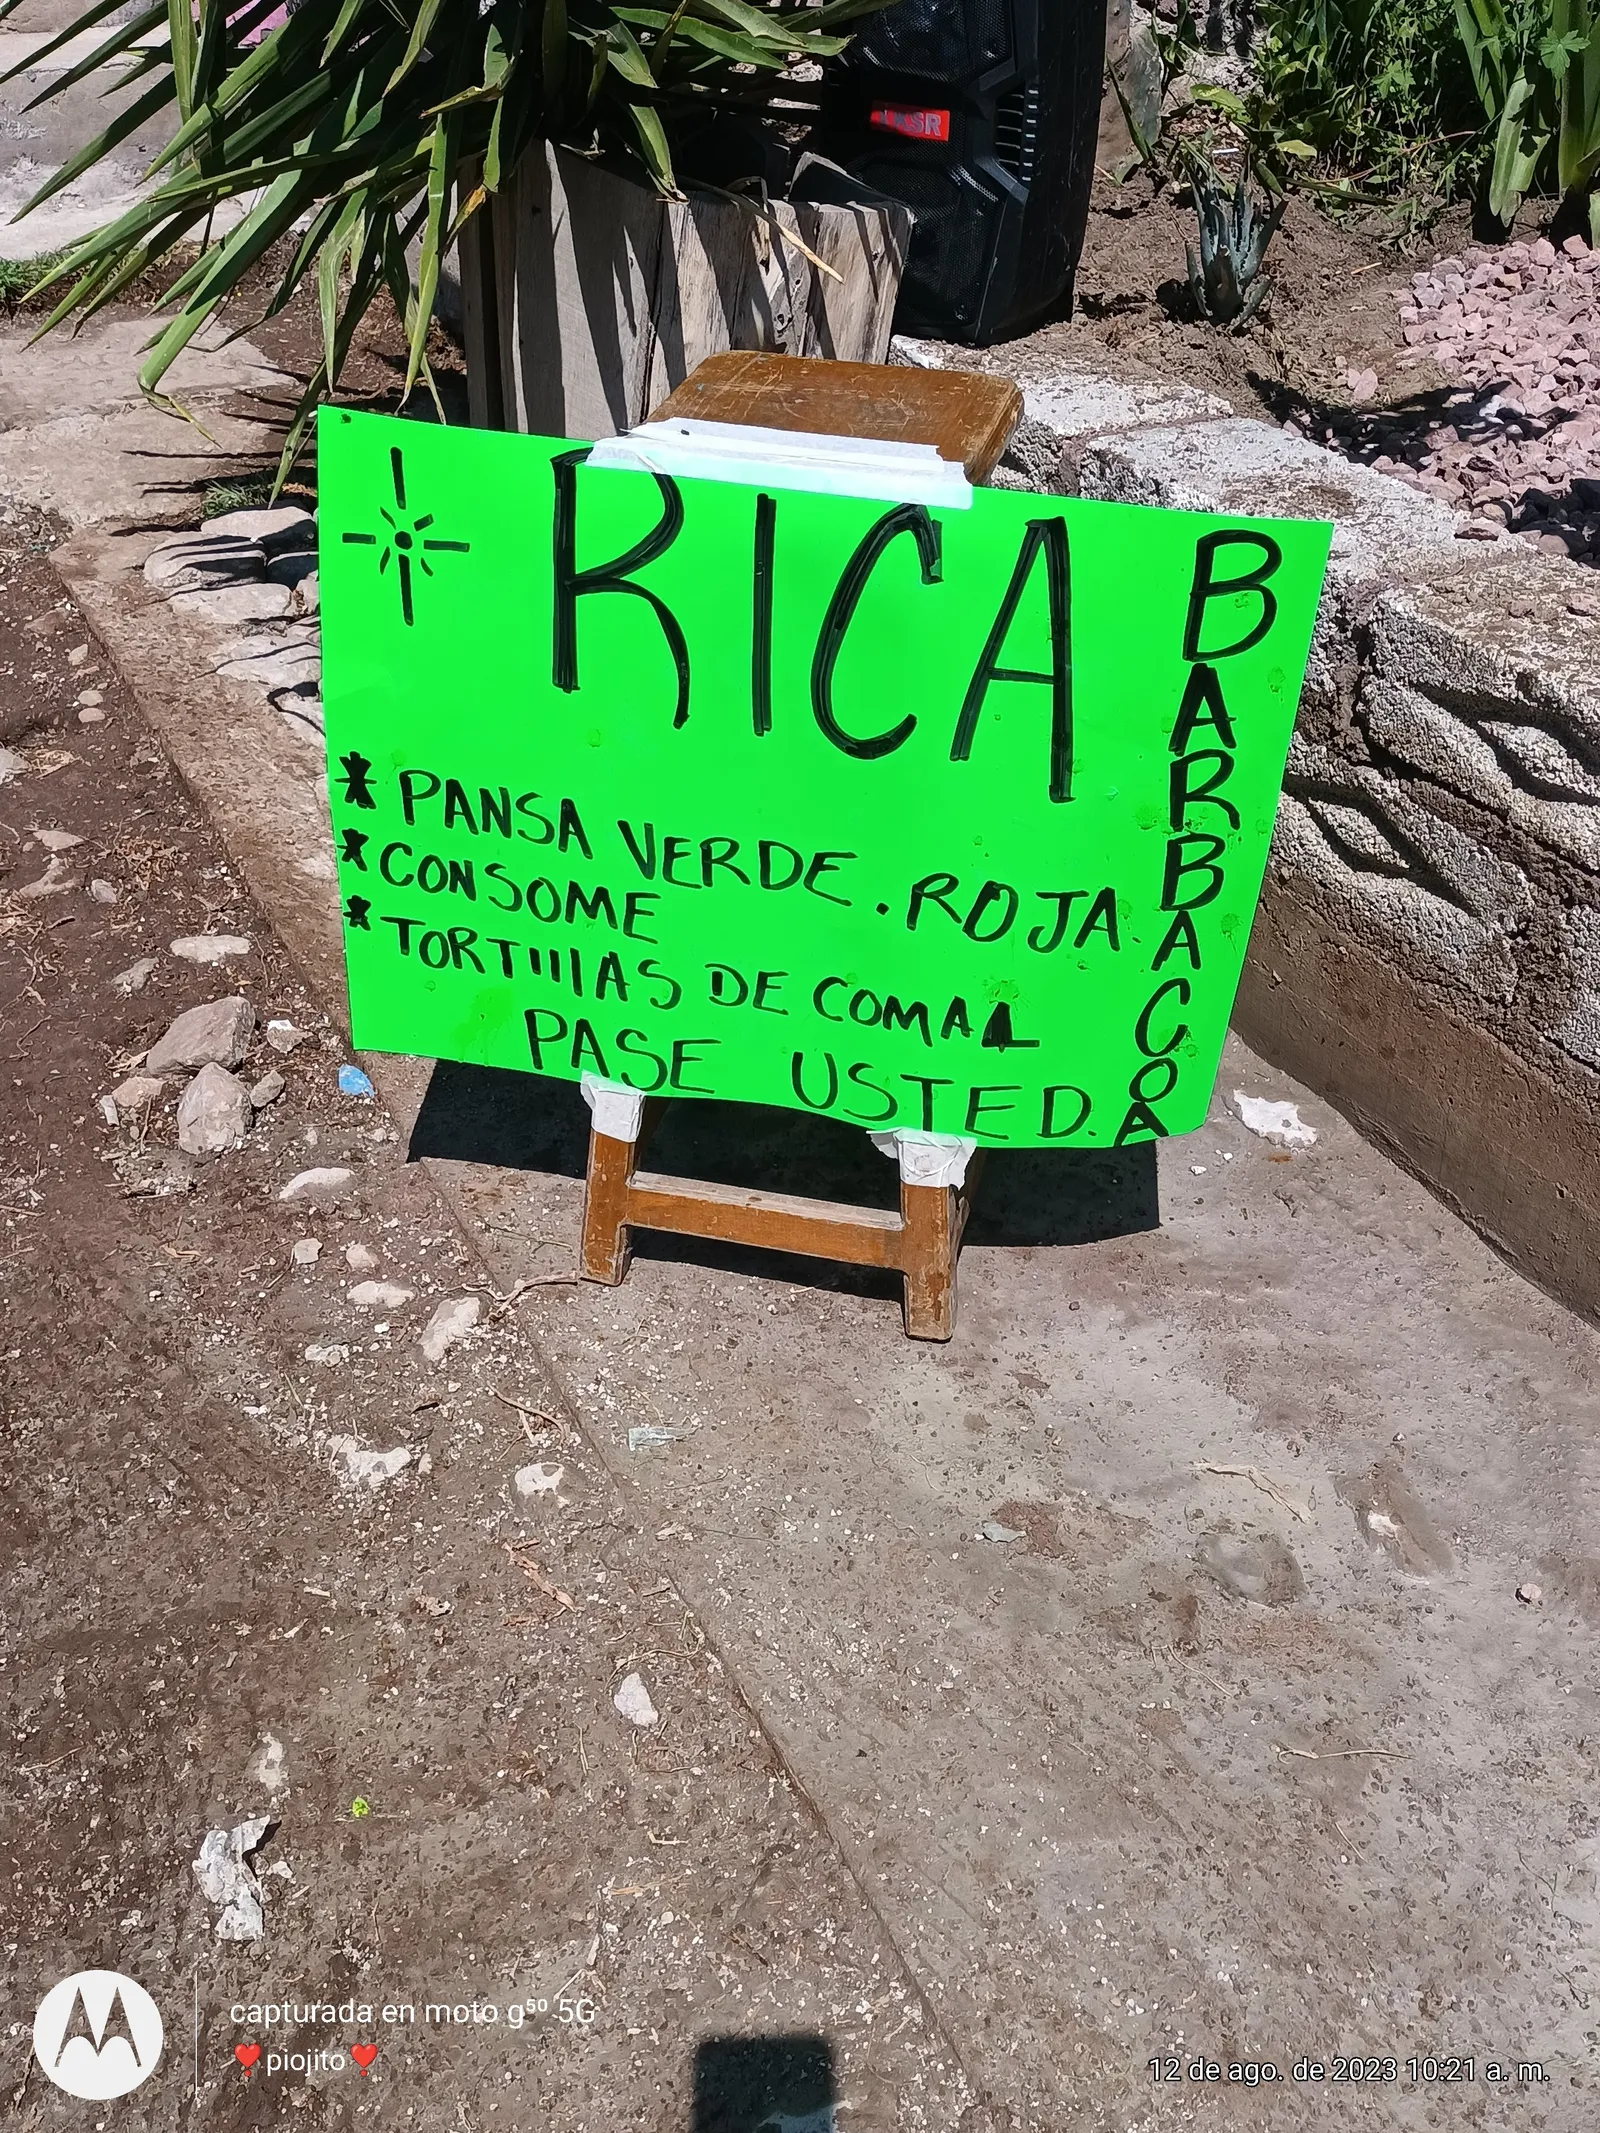 LKSR
RICA
BARBACOA
* PANSA VERDE. ROJA.
* CONSOME
* TORTILLAS DE COMAL
PASE USTED.
capturada en moto g⁵⁰ 5G
❤️piojito❤️
12 de ago. de 2023 10:21 a. m.